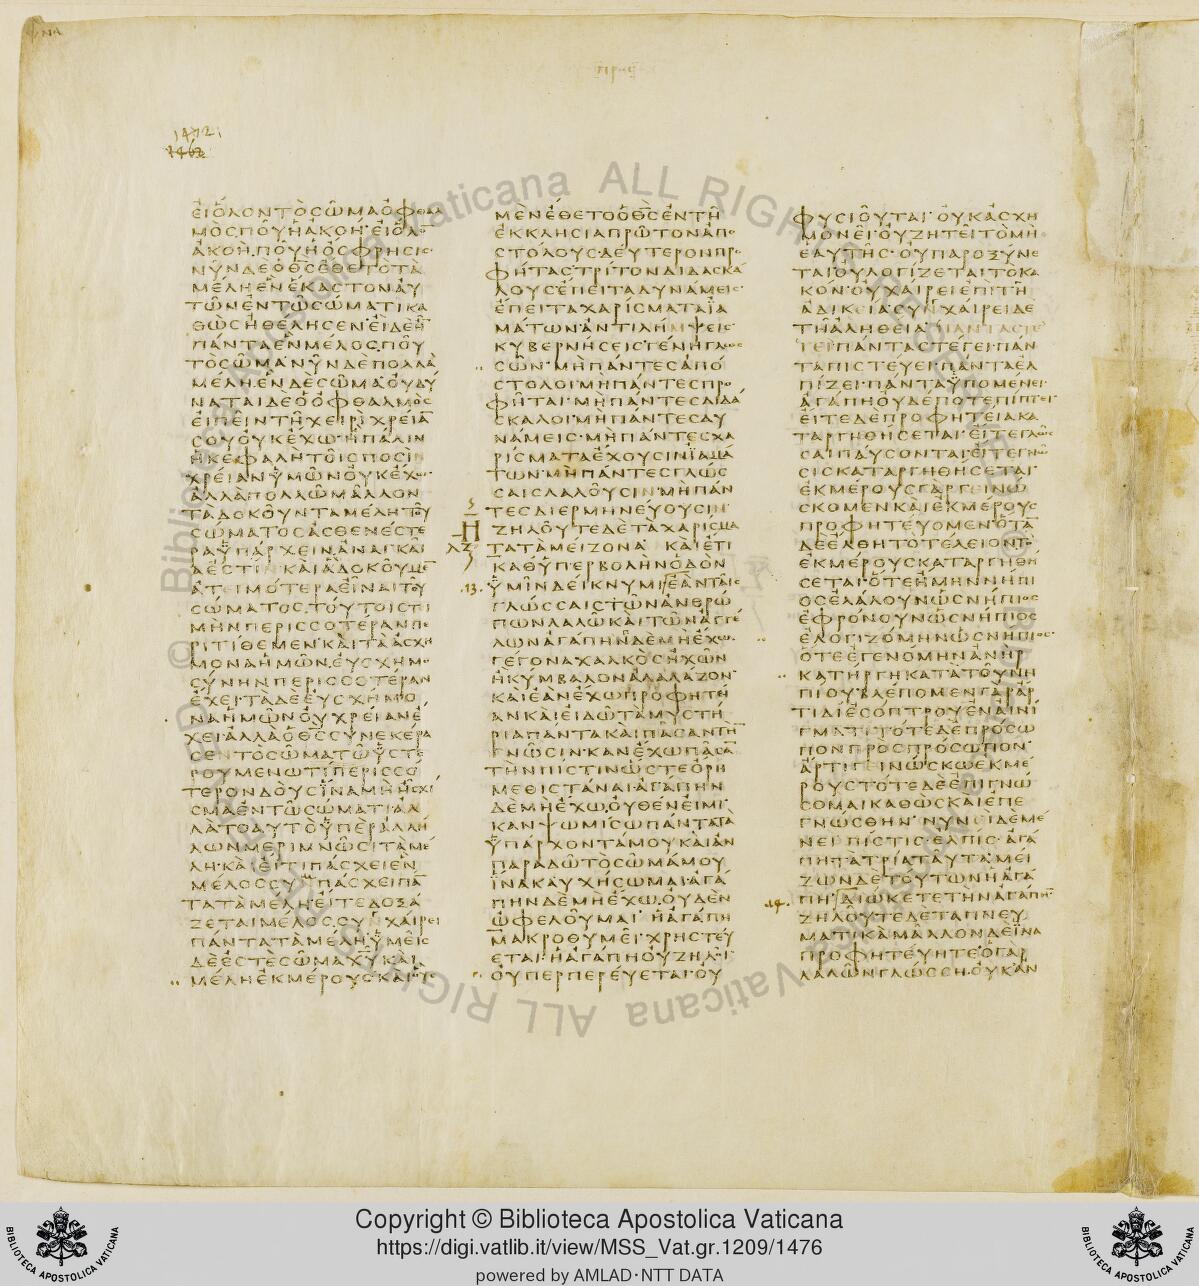 1472
1462
ΕΙΟΛΟΝΤΟΣΩΜΑΟΦΘΑΛ
ΜΟΣΠΟΥΗΑΚΟΗ·ΕΙΟΛΟ
ΑΚΟΗ·ΠΟΥΗΟΣΦΡΗΣΙΣ·
ΝΥΝΔΕΟΘΣΕΘΕΤΟΤΑ
ΜΕΛΗΕΝΕΚΑΣΤΟΝΑΥ
ΤΩΝΕΝΤΩΣΩΜΑΤΙΚΑ
ΘΩΣΗΘΕΛΗΣΕΝ·ΕΙΔΕΗ̅
ΠΑΝΤΑΕΝΜΕΛΟΣ·ΠΟΥ
ΤΟΣΩΜΑ·ΝΥΝΔΕΠΟΛΛΑ
ΜΕΛΗ·ΕΝΔΕΣΩΜΑ·ΟΥΔΥ
ΝΑΤΑΙΔΕΟΟΦΘΑΛΜΟΣ
ΕΙΠΕΙΝΤΗΧΕΙΡΙΧΡΕΙΑ̅
ΣΟΥΟΥΚΕΧΩ·ΗΠΑΛΙΝ
ΗΚΕΦΑΛΗΤΟΙΣΠΟΣΙ̅
ΧΡΕΙΑΝΥΜΩΝΟΥΚΕΧΩ·
ΑΛΛΑΠΟΛΛΩΜΑΛΛΟΝ
ΤΑΔΟΚΟΥΝΤΑΜΕΛΗΤΟΥ
ΣΩΜΑΤΟΣΑΣΘΕΝΕΣΤΕ
ΡΑΥΠΑΡΧΕΙΝΑΝΑΓΚΑΙ
ΑΕΣΤΙΝ·ΚΑΙΑΔΟΚΟΥΜΕ̅
ΑΤΕΙΜΟΤΕΡΑΕΙΝΑΙΤΟΥ
ΣΩΜΑΤΟΣ·ΤΟΥΤΟΙΣΤΙ
ΜΗΝΠΕΡΙΣΣΟΤΕΡΑΝΠΕ
ΡΙΤΙΘΕΜΕΝ·ΚΑΙΤΑΑΣΧΗ
ΜΟΝΑΗΜΩΝ·ΕΥΣΧΗΜΟ
ΣΥΝΗΝΠΕΡΙΣΣΟΤΕΡΑΝ
ΕΧΕΙ·ΤΑΔΕΕΥΣΧΗΜΟ
ΝΑΗΜΩΝΟΥΧΡΕΙΑΝΕ
ΧΕΙ·ΑΛΛΑΟΘΣΣΥΝΕΚΕΡΑ
ΣΕΝΤΟΣΩΜΑΤΩΥΣΤΕ
ΡΟΥΜΕΝΩΤΙΠΕΡΙΣΣΟ
ΤΕΡΟΝΔΟΥΣΙΝΑΜΗΗΣΧΙ
ΣΜΑΕΝΤΩΣΩΜΑΤΙΑΛ
ΛΑΤΟΑΥΤΟΥΠΕΡΑΛΛΗ
ΛΩΝΜΕΡΙΜΝΩΣΙΤΑΜΕ
ΛΗ·ΚΑΙΕΙΤΙΠΑΣΧΕΙΕΝ
ΜΕΛΟΣΣΥΜΠΑΣΧΕΙΠΑ̅
ΤΑΤΑΜΕΛΗ·ΕΙΤΕΔΟΞΑ
ΖΕΤΑΙΜΕΛΟΣ·ΣΥΓΧΑΙΡΕΙ
ΠΑΝΤΑΤΑΜΕΛΗ·ΥΜΕΙΣ
ΔΕΕΣΤΕΣΩΜΑΧΥΚΑΙ
ΜΕΛΗΕΚΜΕΡΟΥΣ·ΚΑΙΟΥΣ
ΜΕΝΕΘΕΤΟΟΘΣΕΝΤΗ
ΕΚΚΛΗΣΙΑΠΡΩΤΟΝΑΠΟ
ΣΤΟΛΟΥΣΔΕΥΤΕΡΟΝΠΡΟ
ΦΗΤΑΣΤΡΙΤΟΝΔΙΔΑΣΚΑ
ΛΟΥΣΕΠΕΙΤΑΔΥΝΑΜΕΙΣ·
ΕΠΕΙΤΑΧΑΡΙΣΜΑΤΑΙΑ
ΜΑΤΩΝ·ΑΝΤΙΛΗΜΨΕΙΣ·
ΚΥΒΕΡΝΗΣΕΙΣ·ΓΕΝΗΓΛΩΣ
ΣΩΝ·ΜΗΠΑΝΤΕΣΑΠΟ
ΣΤΟΛΟΙ·ΜΗΠΑΝΤΕΣΠΡΟ
ΦΗΤΑΙ·ΜΗΠΑΝΤΕΣΔΙΔΑ
ΣΚΑΛΟΙ·ΜΗΠΑΝΤΕΣΔΥ
ΝΑΜΕΙΣ·ΜΗΠΑΝΤΕΣΧΑ
ΡΙΣΜΑΤΑΕΧΟΥΣΙΝΙΑΜΑ
ΤΩΝ·ΜΗΠΑΝΤΕΣΓΛΩΣ
ΣΑΙΣΛΑΛΟΥΣΙΝ·ΜΗΠΑΝ
ΤΕΣΔΙΕΡΜΗΝΕΥΟΥΣΙΝ·
ΖΗΛΟΥΤΕΔΕΤΑΧΑΡΙΣΜΑ
ΤΑΤΑΜΕΙΖΟΝΑ ΚΑΙΕΤΙ
ΚΑΘΥΠΕΡΒΟΛΗΝΟΔΟΝ
13 ΥΜΙΝΔΕΙΚΝΥΜΙ·ΕΑΝΤΑΙΣ
ΓΛΩΣΣΑΙΣΤΩΝΑΝΘΡΩ
ΠΩΝΛΑΛΩΚΑΙΤΩΝΑΓΓΕ
ΛΩΝΑΓΑΠΗΝΔΕΜΗΕΧΩ·
ΓΕΓΟΝΑΧΑΛΚΟΣΗΧΩΝ
ΗΚΥΜΒΑΛΟΝΑΛΑΛΑΖΟΝ·
ΚΑΙΕΑΝΕΧΩΠΡΟΦΗΤΕΙ
ΑΝΚΑΙΕΙΔΩΤΑΜΥΣΤΗ
ΡΙΑΠΑΝΤΑΚΑΙΠΑΣΑΝΤΗ̅
ΓΝΩΣΙΝ·ΚΑΝΕΧΩΠΑΣΑ̅
ΤΗΝΠΙΣΤΙΝΩΣΤΕΟΡΗ
ΜΕΘΙΣΤΑΝΑΙ·ΑΓΑΠΗΝ
ΔΕΜΗΕΧΩ·ΟΥΘΕΝΕΙΜΙ·
ΚΑΝΨΩΜΙΣΩΠΑΝΤΑΤΑ
ΥΠΑΡΧΟΝΤΑΜΟΥΚΑΙΑΝ
ΠΑΡΑΔΩΤΟΣΩΜΑΜΟΥ
ΙΝΑΚΑΥΧΗΣΩΜΑΙ·ΑΓΑ
ΠΗΝΔΕΜΗΕΧΩ·ΟΥΔΕΝ
ΩΦΕΛΟΥΜΑΙ· ΗΑΓΑΠΗ
ΜΑΚΡΟΘΥΜΕΙ·ΧΡΗΣΤΕΥ
ΕΤΑΙ·ΗΑΓΑΠΗΟΥΖΗΛΟΙ·
ΟΥΠΕΡΠΕΡΕΥΕΤΑΙ·ΟΥ
ΦΥΣΙΟΥΤΑΙ·ΟΥΚΑΣΧΗ
ΜΟΝΕΙ·ΟΥΖΗΤΕΙΤΟΜΗ
ΕΑΥΤΗΣ·ΟΥΠΑΡΟΞΥΝΕ
ΤΑΙΟΥΛΟΓΙΖΕΤΑΙΤΟΚΑ
ΚΟΝ·ΟΥΧΑΙΡΕΙΕΠΙΤΗ
ΑΔΙΚΕΙΑ·ΣΥΓΧΑΙΡΕΙΔΕ
ΤΗΑΛΗΘΕΙΑ·
ΠΑΝΤΑΣΤΕΓΕΙ·ΠΑΝ
ΤΑΠΙΣΤΕΥΕΙ·ΠΑΝΤΑΕΛ
ΠΙΖΕΙ·ΠΑΝΤΑΥΠΟΜΕΝΕΙ·
ΑΓΑΠΗΟΥΔΕΠΟΤΕΠΙΠΤΕΙ·
ΕΙΤΕΔΕΠΡΟΦΗΤΕΙΑΚΑ
ΤΑΡΓΗΘΗΣΕΤΑΙ·ΕΙΤΕΓΛΩΣ
ΣΑΙΠΑΥΣΟΝΤΑΙ·ΕΙΤΕΓΝΩ
ΣΙΣΚΑΤΑΡΓΗΘΗΣΕΤΑΙ·
ΕΚΜΕΡΟΥΣΓΑΡΓΕΙΝΩ
ΣΚΟΜΕΝΚΑΙΕΚΜΕΡΟΥΣ
ΠΡΟΦΗΤΕΥΟΜΕΝ·ΟΤΑ̅
ΔΕΕΛΘΗΤΟΤΕΛΕΙΟΝΤΟ
ΕΚΜΕΡΟΥΣΚΑΤΑΡΓΗΘΗ
ΣΕΤΑΙ·ΟΤΕΗΜΗΝΝΗΠΙ
ΟΣΕΛΑΛΟΥΝΩΣΝΗΠΙΟΣ
ΕΦΡΟΝΟΥΝΩΣΝΗΠΙΟΣ
ΕΛΟΓΙΖΟΜΗΝΩΣΝΗΠΙΟΣ·
ΟΤΕΕΓΕΝΟΜΗΝΑΝΗΡ
ΚΑΤΗΡΓΗΚΑΤΑΤΟΥΝΗ
ΠΙΟΥ·ΒΛΕΠΟΜΕΝΓΑΡΑΡ
ΤΙΔΙΕΣΟΠΤΡΟΥΕΝΑΙΝΙ
ΓΜΑΤΙΤΟΤΕΔΕΠΡΟΣΩ
ΠΟΝΠΡΟΣΠΡΟΣΩΠΟΝ·
ΑΡΤΙΓΕΙΝΩΣΚΩΕΚΜΕ
ΡΟΥΣΤΟΤΕΔΕΕΠΙΓΝΩ
ΣΟΜΑΙΚΑΘΩΣΚΑΙΕΠΕ
ΓΝΩΣΘΗΝ· ΝΥΝΕΙΔΕΜΕ
ΝΕΙΠΙΣΤΙΣ·ΕΛΠΙΣ·ΑΓΑ
ΠΗ·ΤΑΤΡΙΑΤΑΥΤΑ·ΜΕΙ
ΖΩΝΔΕΤΟΥΤΩΝΗΑΓΑ
14 ΠΗ·ΔΙΩΚΕΤΕΤΗΝΑΓΑΠΗ̅·
ΖΗΛΟΥΤΕΔΕΤΑΠΝΕΥ
ΜΑΤΙΚΑΜΑΛΛΟΝΔΕΙΝΑ
ΠΡΟΦΗΤΕΥΗΤΕ·ΟΓΑΡ
ΛΑΛΩΝΓΛΩΣΣΗ·ΟΥΚΑΝ
Copyright © Biblioteca Apostolica Vaticana
https://digi.vatlib.it/view/MSS_Vat.gr.1209/1476
powered by AMLAD·NTT DATA